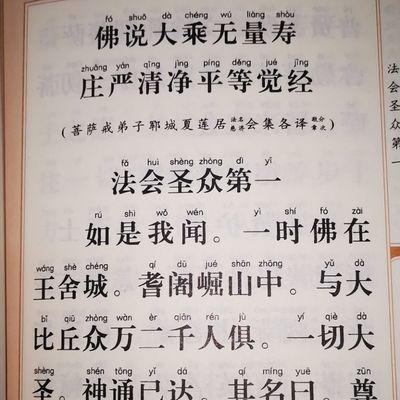 fó shuō dà chéng wú liàng shòu
佛说大乘无量寿
zhuāng yán qīng jìng píng děng jué jīng
庄严清净平等觉经
(菩萨戒弟子郓城夏莲居法名慈济会集各译敬分章次)
fǎ huì shèng zhòng dì yī
法会圣众第一
rú shì wǒ wén yì shí fó zài
如是我闻。一时佛在
wáng shè chéng qí dū jué shān zhōng yǔ dà
王舍城。耆阇崛山中。与大
bǐ qiū zhòng wàn èr qiān rén jù yí qiè dà
比丘众万二千人俱。一切大
shèng shén tōng yǐ dá qí míng yuē zūn
圣。神通已达。其名曰。尊
法
会
圣
众
第
一